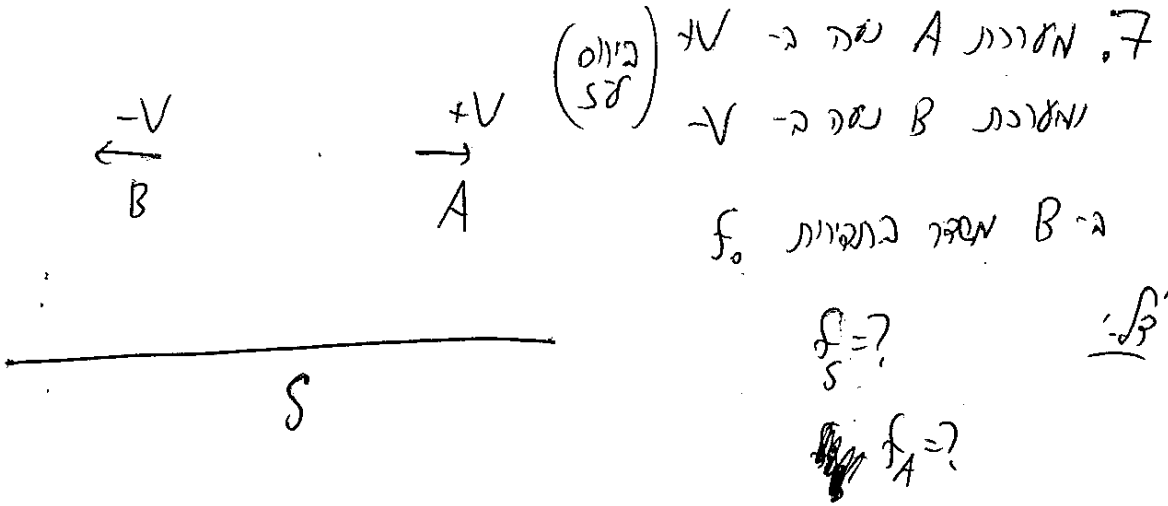 7. מערכת A נעה ב- +V (ביחס לS)
ומערכת B נעה ב- -V
ב- B משדר בתדירות f₀
צ"ל:
f_S=?
f_A=?
-V
B
+V
A
S